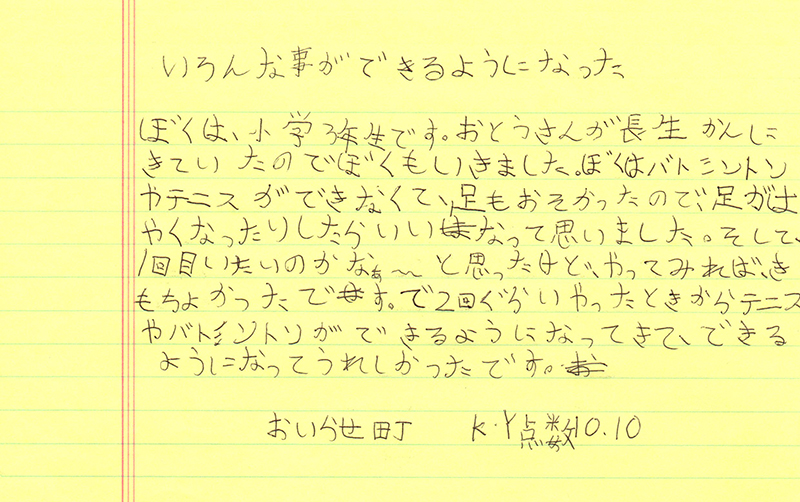 いろんな事ができるようになった
ぼくは、小学3年生です。おとうさんが長生かんに
きていたのでぼくもいきました。ぼくはバトミントン
やテニスができなくて、足もおそかったので、足がは
やくなったりしたらいいなって思いました。そして、
1回目いたいのかなぁ〜〜と思ったけど、やってみれば、き
もちよかったです。で2回ぐらいやったときからテニス
やバトミントンができるようになってきて、できる
ようになってうれしかったです。
おいらせ町 K・Y点数10.10